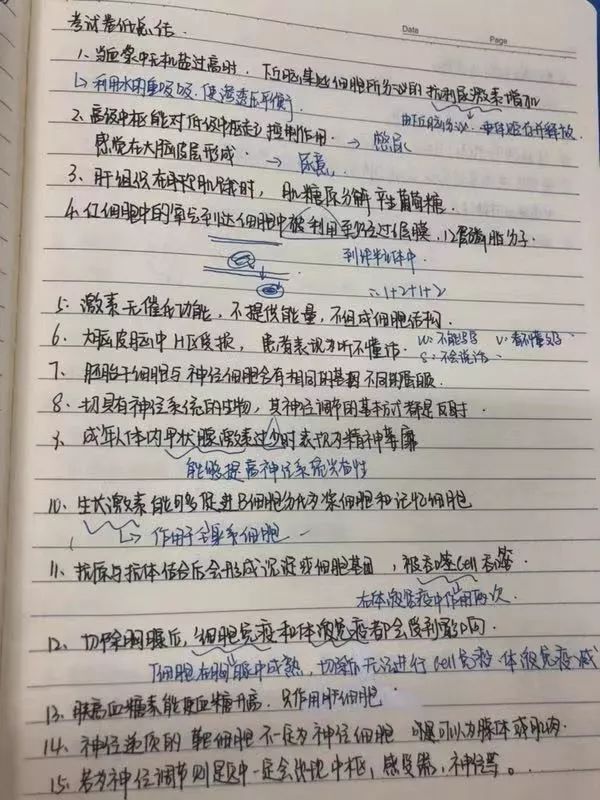 Date
Page
考试卷低总结.
1. 当血浆中无机盐过高时. 下丘脑某些细胞所分泌的抗利尿激素增加
↳利用水的重吸收. 使渗透压平衡
由下丘脑分泌. 垂体贮存并释放
2. 高级中枢能对低级中枢起控制作用. → 憋尿
感觉在大脑皮层形成. → 尿意.
3. 肝组织在 肌 时, 肌糖原分解产生葡萄糖.
4. 红细胞中的氧气到达细胞中被利用至少经过6层膜. 12层磷脂分子.
到线粒体中.
∴1+2+1+2
5. 激素无催化功能, 不提供能量, 不组成细胞结构.
6. 大脑皮层中H区受损, 患者表现为听不懂话. W: 不能写字 V: 看不懂文字
S: 不会说话.
7. 胚胎干细胞与神经细胞会有相同的基因不同的蛋白.
8. 一切具有神经系统的生物, 其神经调节的基本方式都是反射.
9. 成年人体内甲状腺激素过少时表现为精神萎靡
能够提高神经系统兴奋性
10. 生长激素能够促进B细胞分化为浆细胞和记忆细胞
↳ 作用于全身系细胞
11. 抗原与抗体结合后会形成沉淀或细胞集团, 被吞噬cell吞噬.
在体液免疫中作用两次.
12. 切除胸腺后, 细胞免疫和体液免疫都会受到影响.
T细胞在胸腺中成熟, 切除后无法进行cell免疫. 体液免疫减
13. 胰高血糖素能使血糖升高. 只作用肝细胞.
14. 神经递质的靶细胞不一定为神经细胞 可以为腺体或肌肉.
15. 若为神经调节则 中一定会出现中枢, 感受器, 神经等。